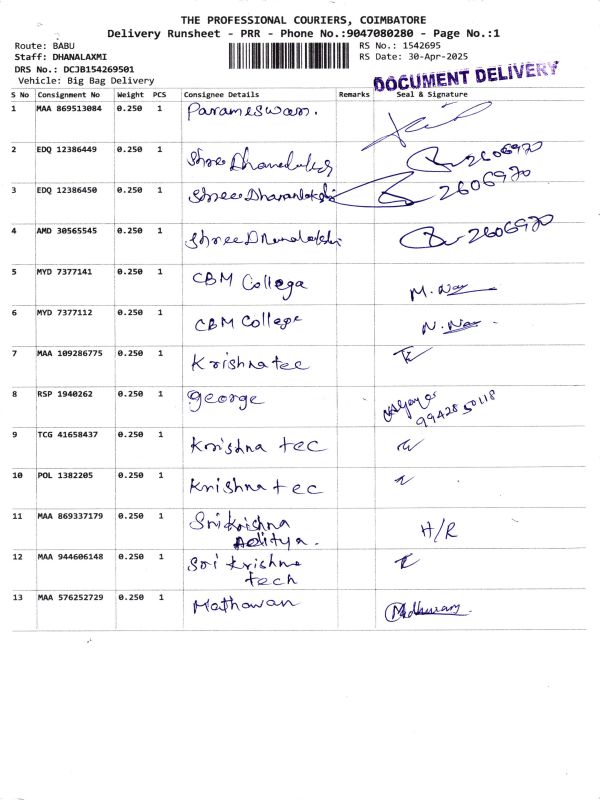 THE PROFESSIONAL COURIERS, COIMBATORE
Delivery Runsheet - PRR - Phone No.:9047080280 - Page No.:1
Route: BABU RS No.: 1542695
Staff: DHANALAXMI RS Date: 30-Apr-2025
DRS No.: DCJB154269501
Vehicle: Big Bag Delivery
DOCUMENT DELIVERY
S No Consignment No Weight PCS Consignee Details Remarks Seal & Signature
1 MAA 869513084 0.250 1 Parameswaran.
2 EDQ 12386449 0.250 1 Shree 2606970
3 EDQ 12386450 0.250 1 Shree 2606970
4 AMD 30565545 0.250 1 Shree 2606970
5 MYD 7377141 0.250 1 CBM College M.
6 MYD 7377112 0.250 1 CBM College N.
7 MAA 109286775 0.250 1 Krishna tec
8 RSP 1940262 0.250 1 george
9942850118
9 TCG 41658437 0.250 1 Krishna tec
10 POL 1382205 0.250 1 Krishna tec
11 MAA 869337179 0.250 1 Sri Krishna H/R
Aditya.
12 MAA 944606148 0.250 1 Sri Krishna
tech
13 MAA 576252729 0.250 1 Mathawan